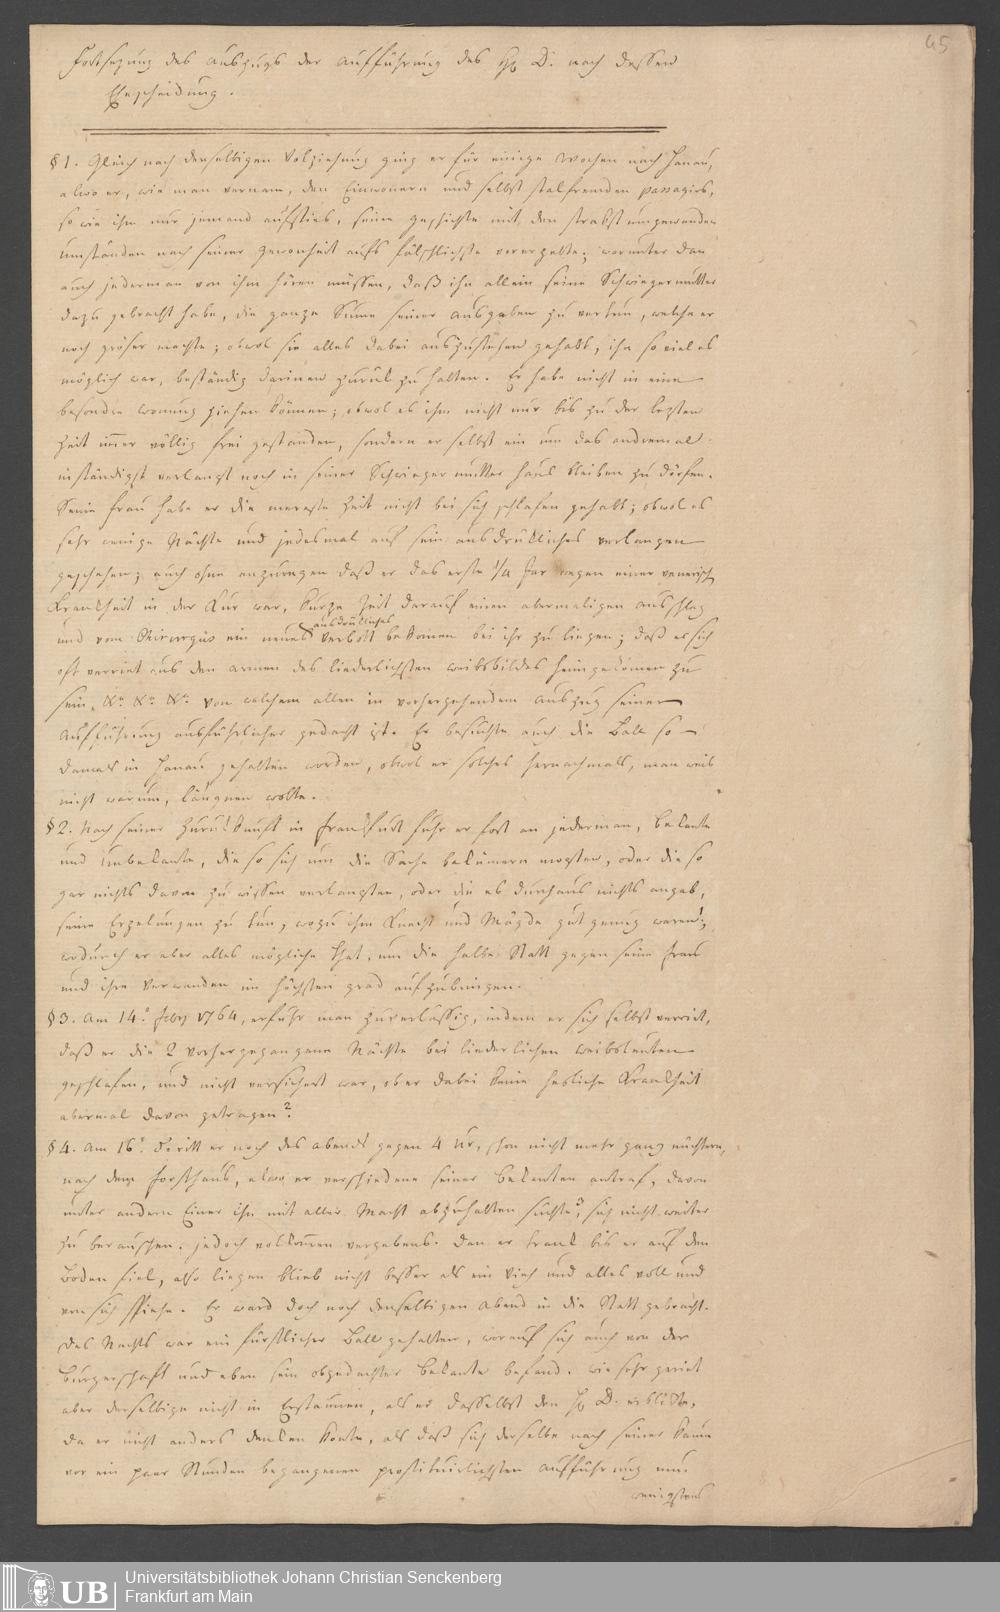 45
Fortsezung des Auszugs der Aufführung des H. D. nach dessen
Ehescheidung.
§ 1. Gleich nach derselbigen Volziehung ging er für einige Wochen nach Hanau,
alwo er, wie man vernam, den Einwonern und selbst stalfremden Passagirs,
so wie ihm nur jemand aufsties, seine geschichte mit den
umständen nach seiner gewonheit aufs fälschlichste vererzelte; worunter dan
auch jederman von ihm hören müssen, daß ihn allein seine Schwiegermutter
dazu gebracht habe, die ganze Sume seiner ausgaben zu vertun, welche er
noch gröser machte; obwol sie alles dabei auszustehen gehabt, ihn so viel es
möglich war, beständig darinen zurük zu halten. Er habe nicht in eine
besondre wonung ziehen können; obwol es ihm nicht nur bis zu der lezten
Zeit imer völlig frei gestanden, sondern er selbst ein um das andremal
inständigst verlangt noch in seiner Schwiegermutter Haus bleiben zu dörfen.
Seine frau habe er die mereste Zeit nicht bei sich schlafen gehabt; obwol es
sehr wenige Nächte und jedesmal auf sein ausdrükliches verlangen
geschehen; auch ohne anzuregen daß er das erste 1/4 Jar wegen einer venerisch
Krankheit in der Kur war, kurze Zeit darauf einen abermaligen ausschlag
und vom Chirurgus ein neues ausdrükliches verbott bekomen bei ihr zu liegen; daß er sich
oft verriet aus den armen des liederlichsten weibsbildes heimgekomen zu
sein, &c. &c. &c. von welchem allen in vorhergehendem Auszug seiner
Aufführung ausführlicher gedacht ist. Er besuchte auch die Bälle so
damals in Hanau gehalten worden, obwol er solches hernachmals, man weis
nicht warum, läugnen wolte.
§ 2. Nach seiner Zurükkunft in Frankfurt fuhr er fort an jederman, bekante
und unbekante, die so sich um die Sache bekümern mogten, oder die so
gar nichts davon zu wissen verlangten, oder die es durchaus nichts angieng,
seine Erzelungen zu tun, wozu ihm Knecht und Mägde gut genug waren;
wodurch er aber alles mögliche that, um die halbe Statt gegen seine Frau
und ihre Verwanden im höchsten grad aufzubringen.
§ 3. Am 14.ⁿ Febr 1764, erfuhr man zuverlässig, indem er sich selbst verriet,
daß er die 2 vorhergegangene Nächte bei liederlichen weibsleuten
geschlafen, und nicht versichert war, ob er dabei keine hesliche Krankheit
abermal davon getragen?
§ 4. Am 16.ⁿ ritt er noch des abends gegen 4 Ur, schon nicht mehr ganz nüchtern,
nach dem Forsthaus, alwo er verschiedene seiner bekanten antraf, davon
unter andern Einer ihn mit aller Macht abzuhalten suchte, sich nicht weiter
zu berauschen. jedoch volkomen vergebens. dan er trank bis er auf den
Boden fiel, also liegen blieb nicht besser als ein Vieh und alles voll und
von sich spiehe. Er ward doch noch denselbigen Abend in die Statt gebracht.
Des Nachts war ein fürstlicher Ball gehalten, worauf sich auch von der
Burgerschaft und eben sein obgedachter bekante befand. wie sehr geriet
aber derselbige nicht in Erstaunen, als er daselbst den H. D. erblikte,
da er nicht anders denken konte, als daß sich derselbe nach seiner kaum
vor ein paar Stunden begangenen prostituirlichsten Aufführung nun
wenigstens
UB
Universitätsbibliothek Johann Christian Senckenberg
Frankfurt am Main